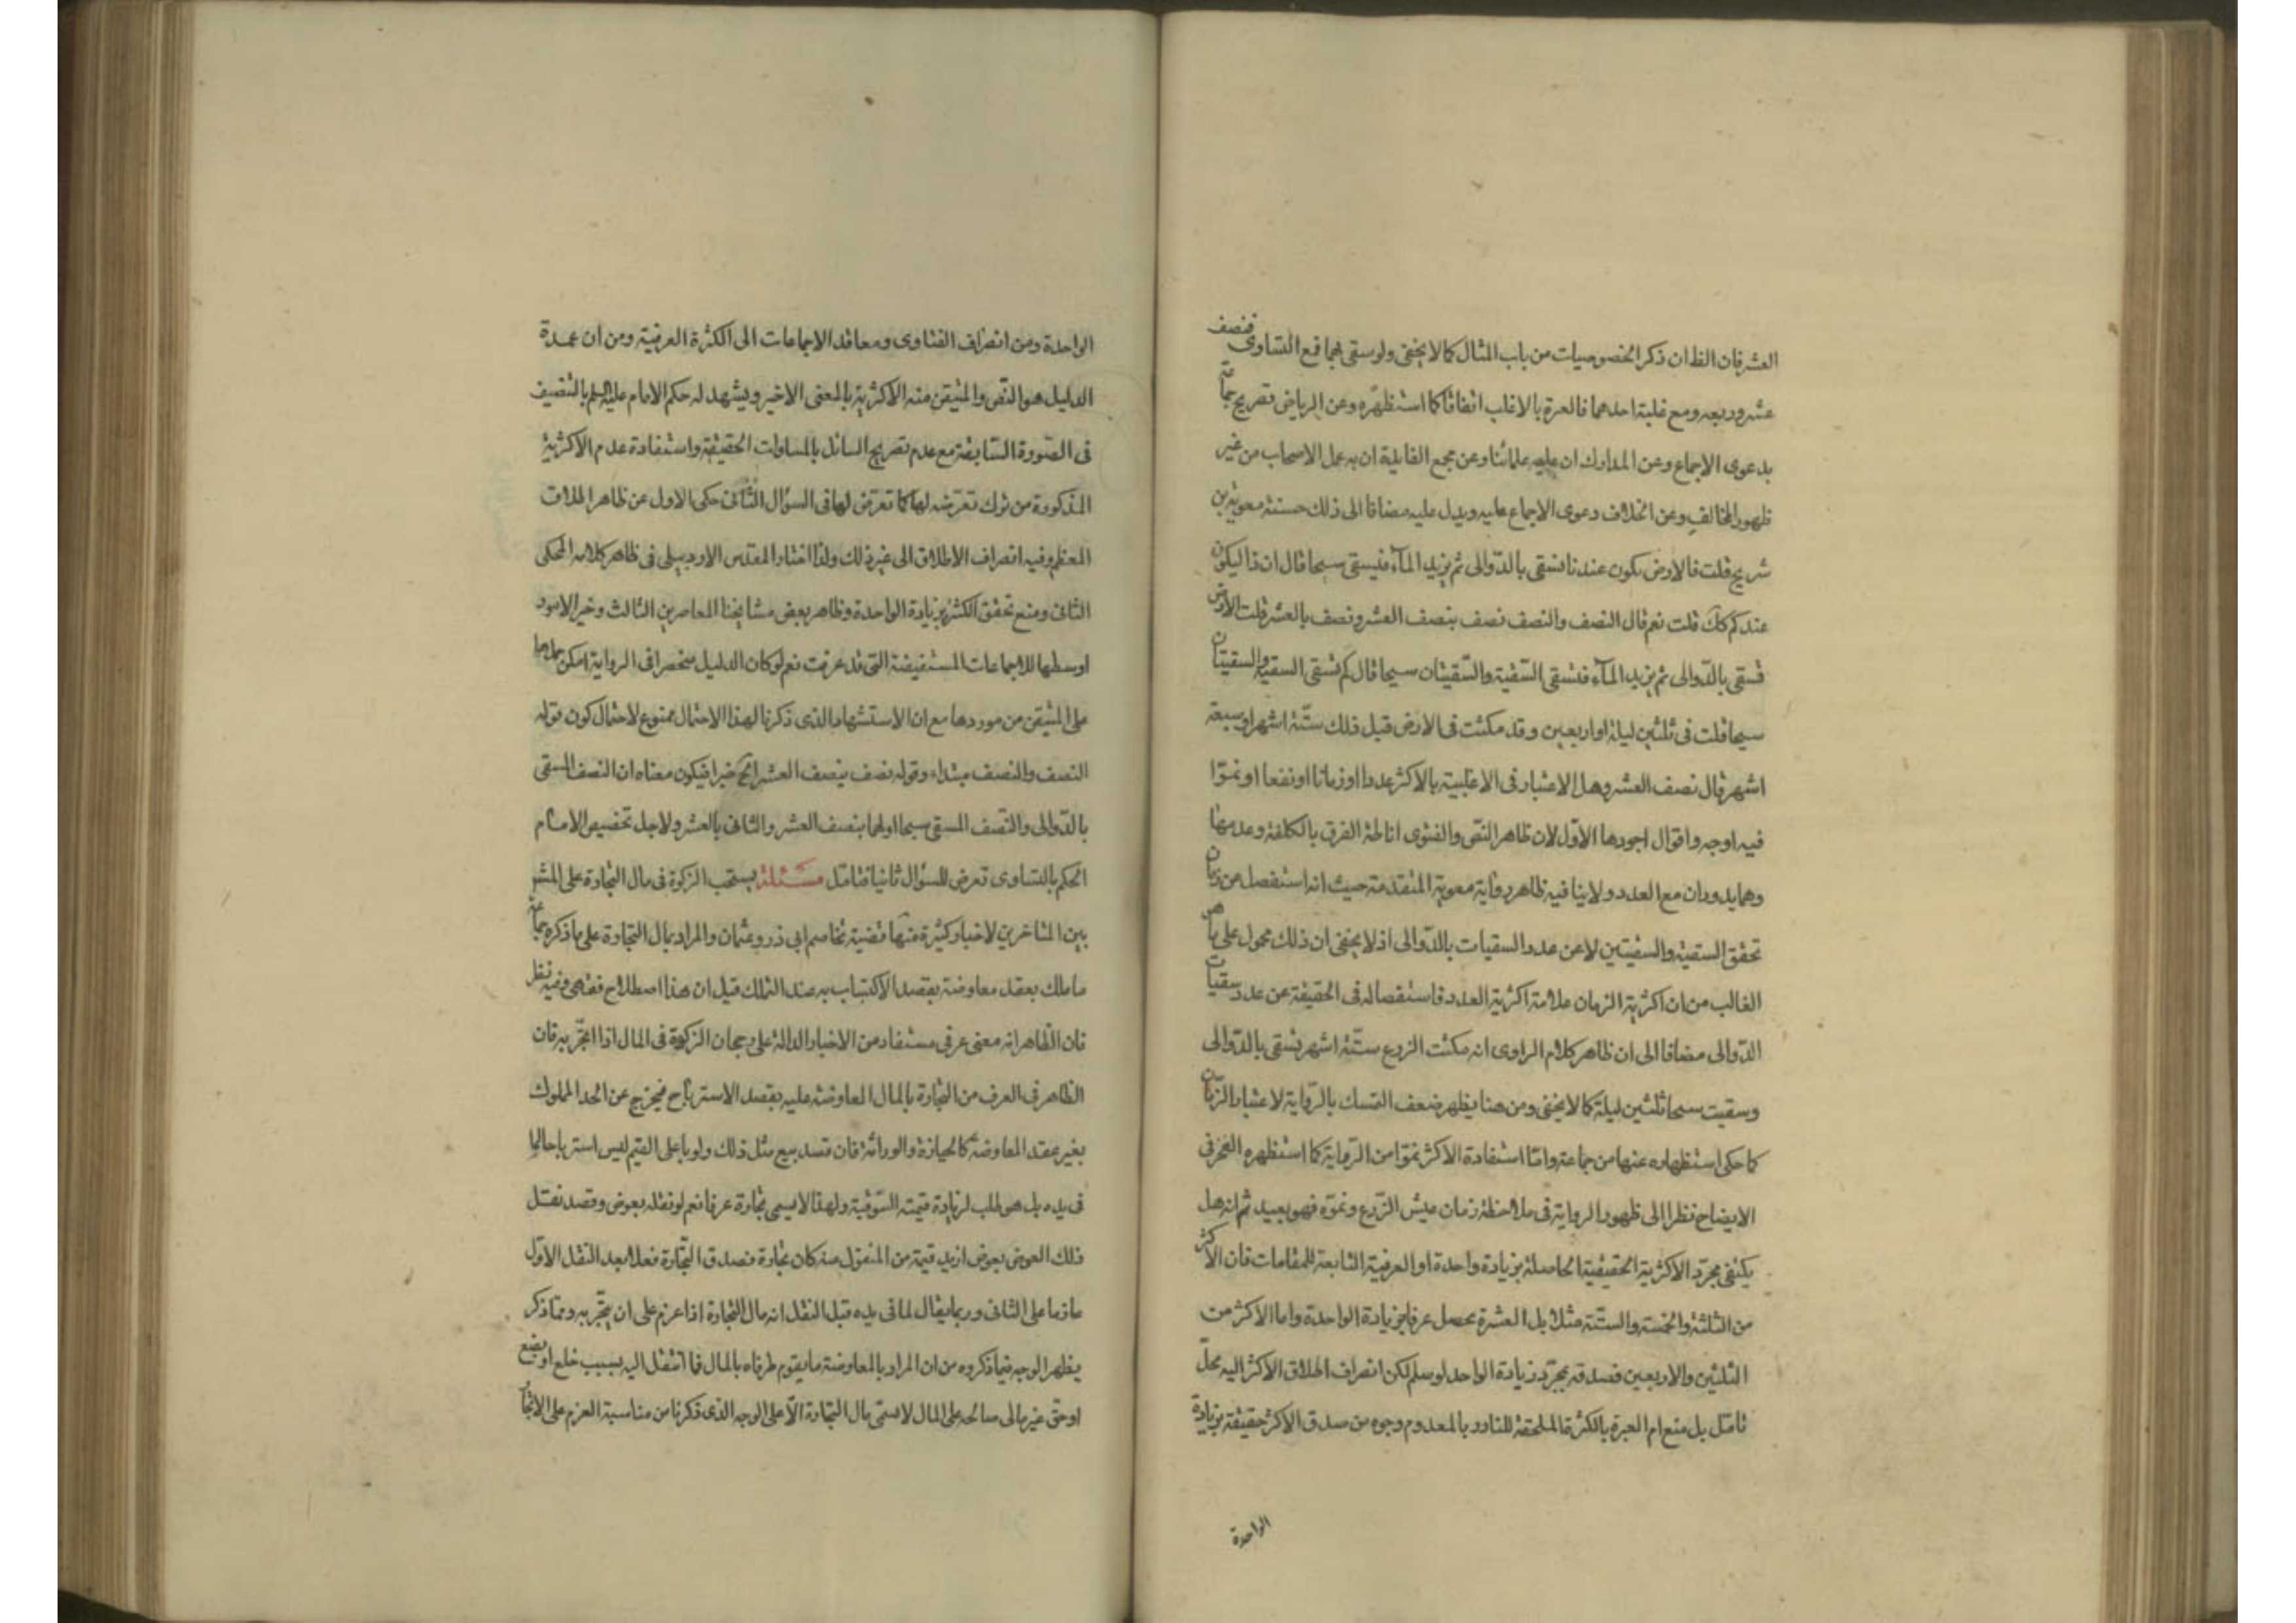 العشر فان الظ ان ذكر الخصوصيات من باب المثال كما لا يخفى ولو سقى بهما فمع التساوى فنصف
عشر وربعه ومع غلبة احدهما فالعبرة بالاغلب اتفاقا كما استظهره وعن الرياض تصريح جماعة
بدعوى الاجماع وعن المدارك ان عليه علمائنا وعن مجمع الفايدة ان به عمل الاصحاب من غير
ظهور المخالف وعن الخلاف دعوى الاجماع عليه ويدل عليه مضافا الى ذلك حسنة معوية بن
شريح قلت فالارض تكون عندنا تسقى بالدوالى ثم يزيد الماء فتسقى سيحا قال ان ذا ليكون
عندكم كك قلت نعم قال النصف والنصف نصف بنصف العشر ونصف بالعشر قلت الارض
تسقى بالدوالى ثم يزيد الماء فتسقى السقية والسقيتان سيحا قال كم تسقى السقية والسقيتان
سيحا قلت فى ثلثين ليلة او اربعين وقد مكثت فى الارض قبل ذلك ستة اشهر او سبعة
اشهر قال نصف العشر وهل الاعتبار فى الاغلبية بالاكثر عددا او زمانا او نفعا او نموا
فيه اوجه واقوال اجودها الاول لان ظاهر النص والفتوى اناطة الفرق بالكلفة وعدمها
وهما يدوران مع العدد ولا ينافيه ظاهر رواية معوية المتقدمة حيث انه استفصل من زمان
تحقق السقية والسقيتين لا عن عدد السقيات بالدوالى اذ لا يخفى ان ذلك محمول على ما هو
الغالب من ان اكثرية الزمان علامة اكثرية العدد فاستفصاله فى الحقيقة عن عدد سقيات
الدوالى مضافا الى ان ظاهر كلام الراوى انه مكثت الزرع ستة اشهر تسقى بالدوالى
وسقيت سيحا ثلثين ليلة كما لا يخفى ومن هنا يظهر ضعف التمسك بالرواية لاعتبار الزمان
كما حكى استظهاره عنها من جماعة واما استفادة الاكثر نموا من الرواية كما استظهره الفخر فى
الايضاح نظرا الى ظهور الرواية فى ملاحظة زمان عيش الزرع ونموه فهو بعيد ثم انه هل
يكتفى بمجرد الاكثرية الحقيقية الحاصلة بزيادة واحدة او العرفية التابعة للمقامات فان الاكثر
من الثلثة والخمسة والستة مثلا بل العشرة يحصل عرفا بزيادة الواحدة واما الاكثر من
الثلثين والاربعين فصدقه بمجرد زيادة الواحد لو سلم لكن انصراف اطلاق الاكثر اليه محل
تامل بل منع ام العبرة بالكثرة الملحقة للنادر بالمعدوم وجوه من صدق الاكثر حقيقة بزيادة
الواحدة
الواحدة ومن انصراف الفتاوى ومعاقد الاجماعات الى الكثرة العرفية ومن ان عمدة
الدليل هو النص والمتيقن منه الاكثرية بالمعنى الاخير ويشهد له حكم الامام عليه السلم بالتنصيف
فى الصورة السابقة مع عدم تصريح السائل بالمساوات الحقيقية واستفادة عدم الاكثرية
المذكورة من ترك تعرضه لها كما تعرض لها فى السؤال الثانى حكى الاول عن ظاهر اطلاق
المعظم وفيه انصراف الاطلاق الى غير ذلك ولذا اختار المقدس الاردبيلى فى ظاهر كلامه المحكى
الثانى ومنع تحقق الكثرة بزيادة الواحدة وظاهر بعض مشايخنا المعاصرين الثالث وخير الامور
اوسطها للاجماعات المستفيضة التى قد عرفت نعم لو كان الدليل منحصرا فى الرواية امكن حملها
على المتيقن من موردها مع ان الاستشهاد الذى ذكرنا لهذا الاحتمال ممنوع لاحتمال كون قوله
النصف والنصف مبتداء وقوله نصف بنصف العشر الخ خبرا فيكون معناه ان النصف المسقى
بالدوالى والنصف المسقى سيحا اولهما بنصف العشر والثانى بالعشر ولاجل تخصيص الامام
الحكم بالتساوى تعرض للسؤال ثانيا فتامل مسئلة يستحب الزكوة فى مال التجارة على المشهور
بين المتاخرين لاخبار كثيرة منها قضية تخاصم ابى ذر وعثمان والمراد بمال التجارة على ما ذكره جماعة
ما ملك بعقد معاوضة بقصد الاكتساب به عند التملك قيل ان هذا اصطلاح فقهى وفيه نظر
فان الظاهر انه معنى عرفى مستفاد من الاخبار الدالة على رجحان الزكوة فى المال اذا اتجر به فان
الظاهر فى العرف من التجارة بالمال المعاوضة عليه بقصد الاسترباح فيخرج عن الحد المملوك
بغير عقد المعاوضة كالحيازة والوراثة فان قصد بيع مثل ذلك ولو باعلى القيم ليس استرباحا لما
فى يده بل هو طلب لزيادة قيمته السوقية ولهذا لا يسمى تجارة عرفا نعم لو نقله بعوض وقصد نقل
ذلك العوض بعوض ازيد قيمة من المنقول منه كان تجارة فصدق التجارة فعلا بعد النقل الاول
عازما على الثانى وربما يقال لما فى يده قبل النقل انه مال التجارة اذا عزم على ان يتجر به ومما ذكر
يظهر الوجه فيما ذكروه من ان المراد بالمعاوضة ما يقوم طرفاه بالمال فما انتقل اليه بسبب خلع او بضع
او حق غير مالى صالحه على المال لا يسمى مال التجارة الا على الوجه الذى ذكرنا من مناسبة العزم على الاتجار